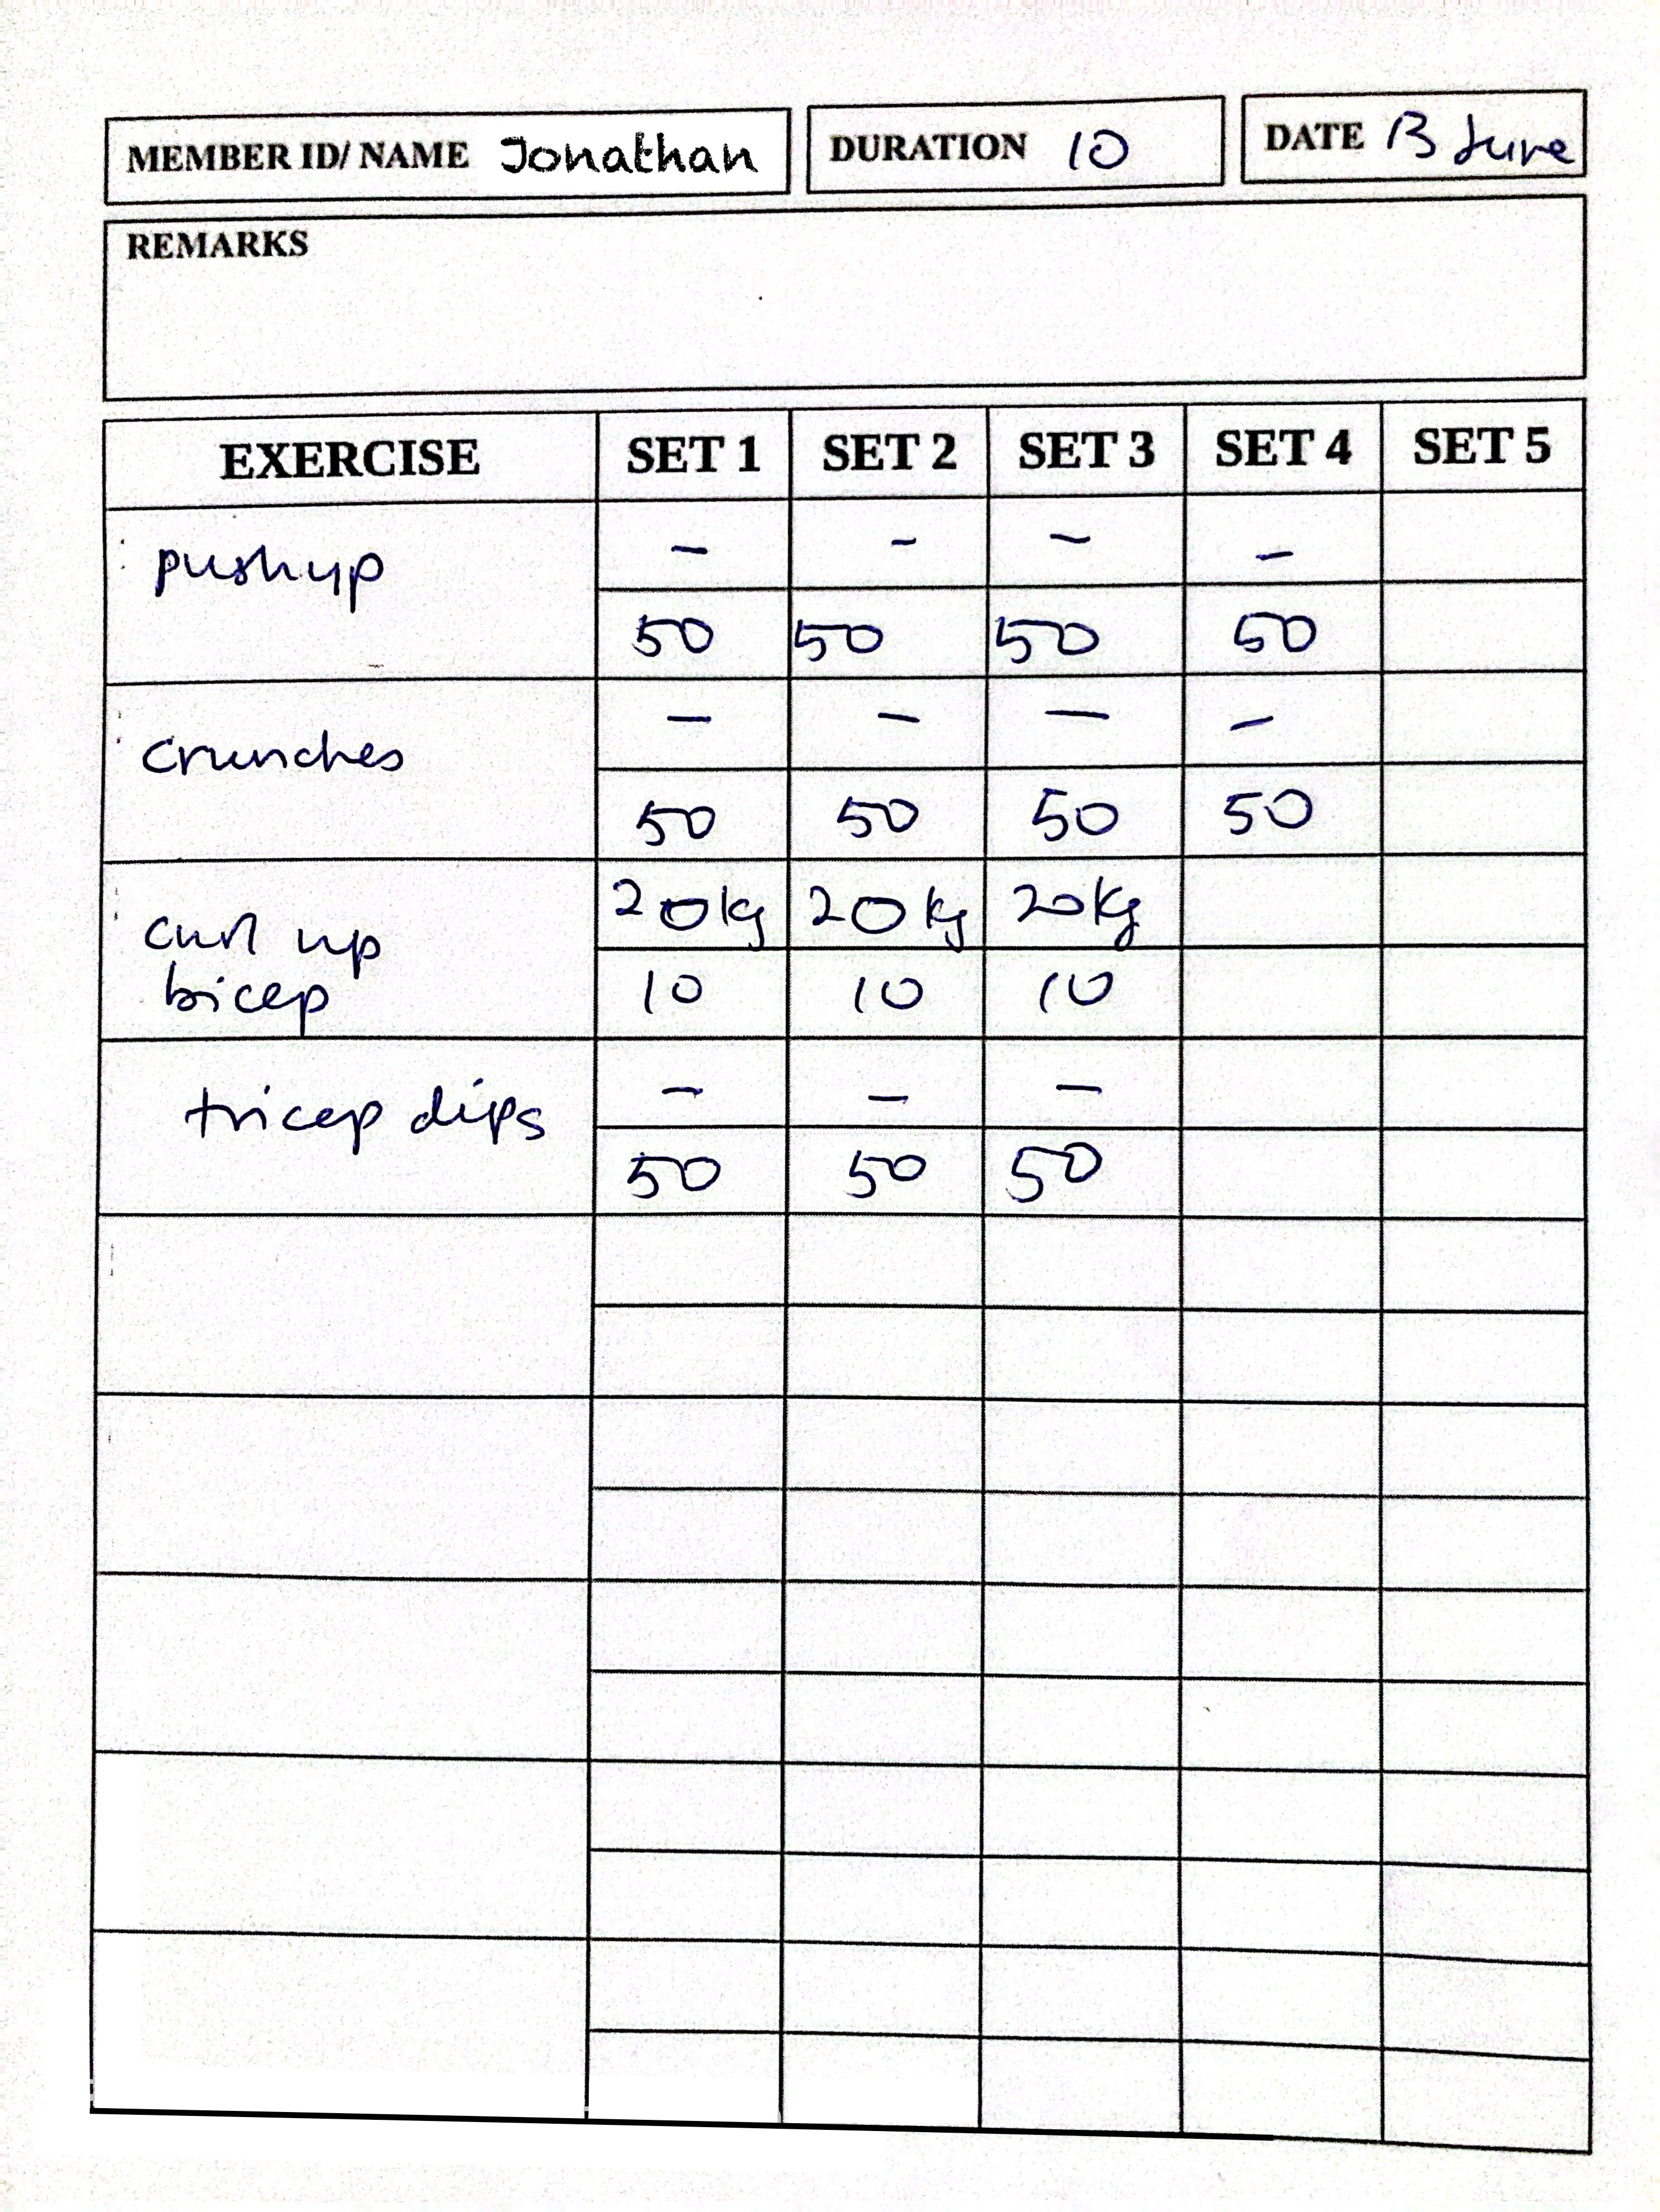 MEMBER ID/ NAME Jonathan DURATION 10 DATE 13 June
REMARKS
EXERCISE SET 1 SET 2 SET 3 SET 4 SET 5
pushup - - - -
50 50 50 50
crunches - - - -
50 50 50 50
curl up 20kg 20kg 20kg
bicep 10 10 10
tricep dips - - -
50 50 50